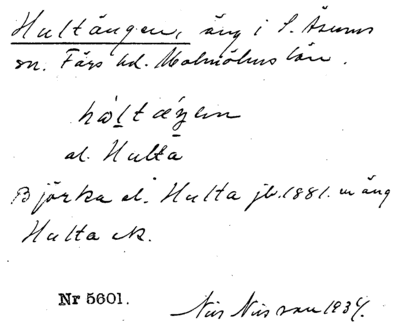 Hultängen, äng i S. Åsums
sn. Färs hd. Malmöhus län.
al. Hulta
Björka el. Hulta jb. 1881. m äng
Hulta ek.
Nr 5601. Nils Nilsson 1934.